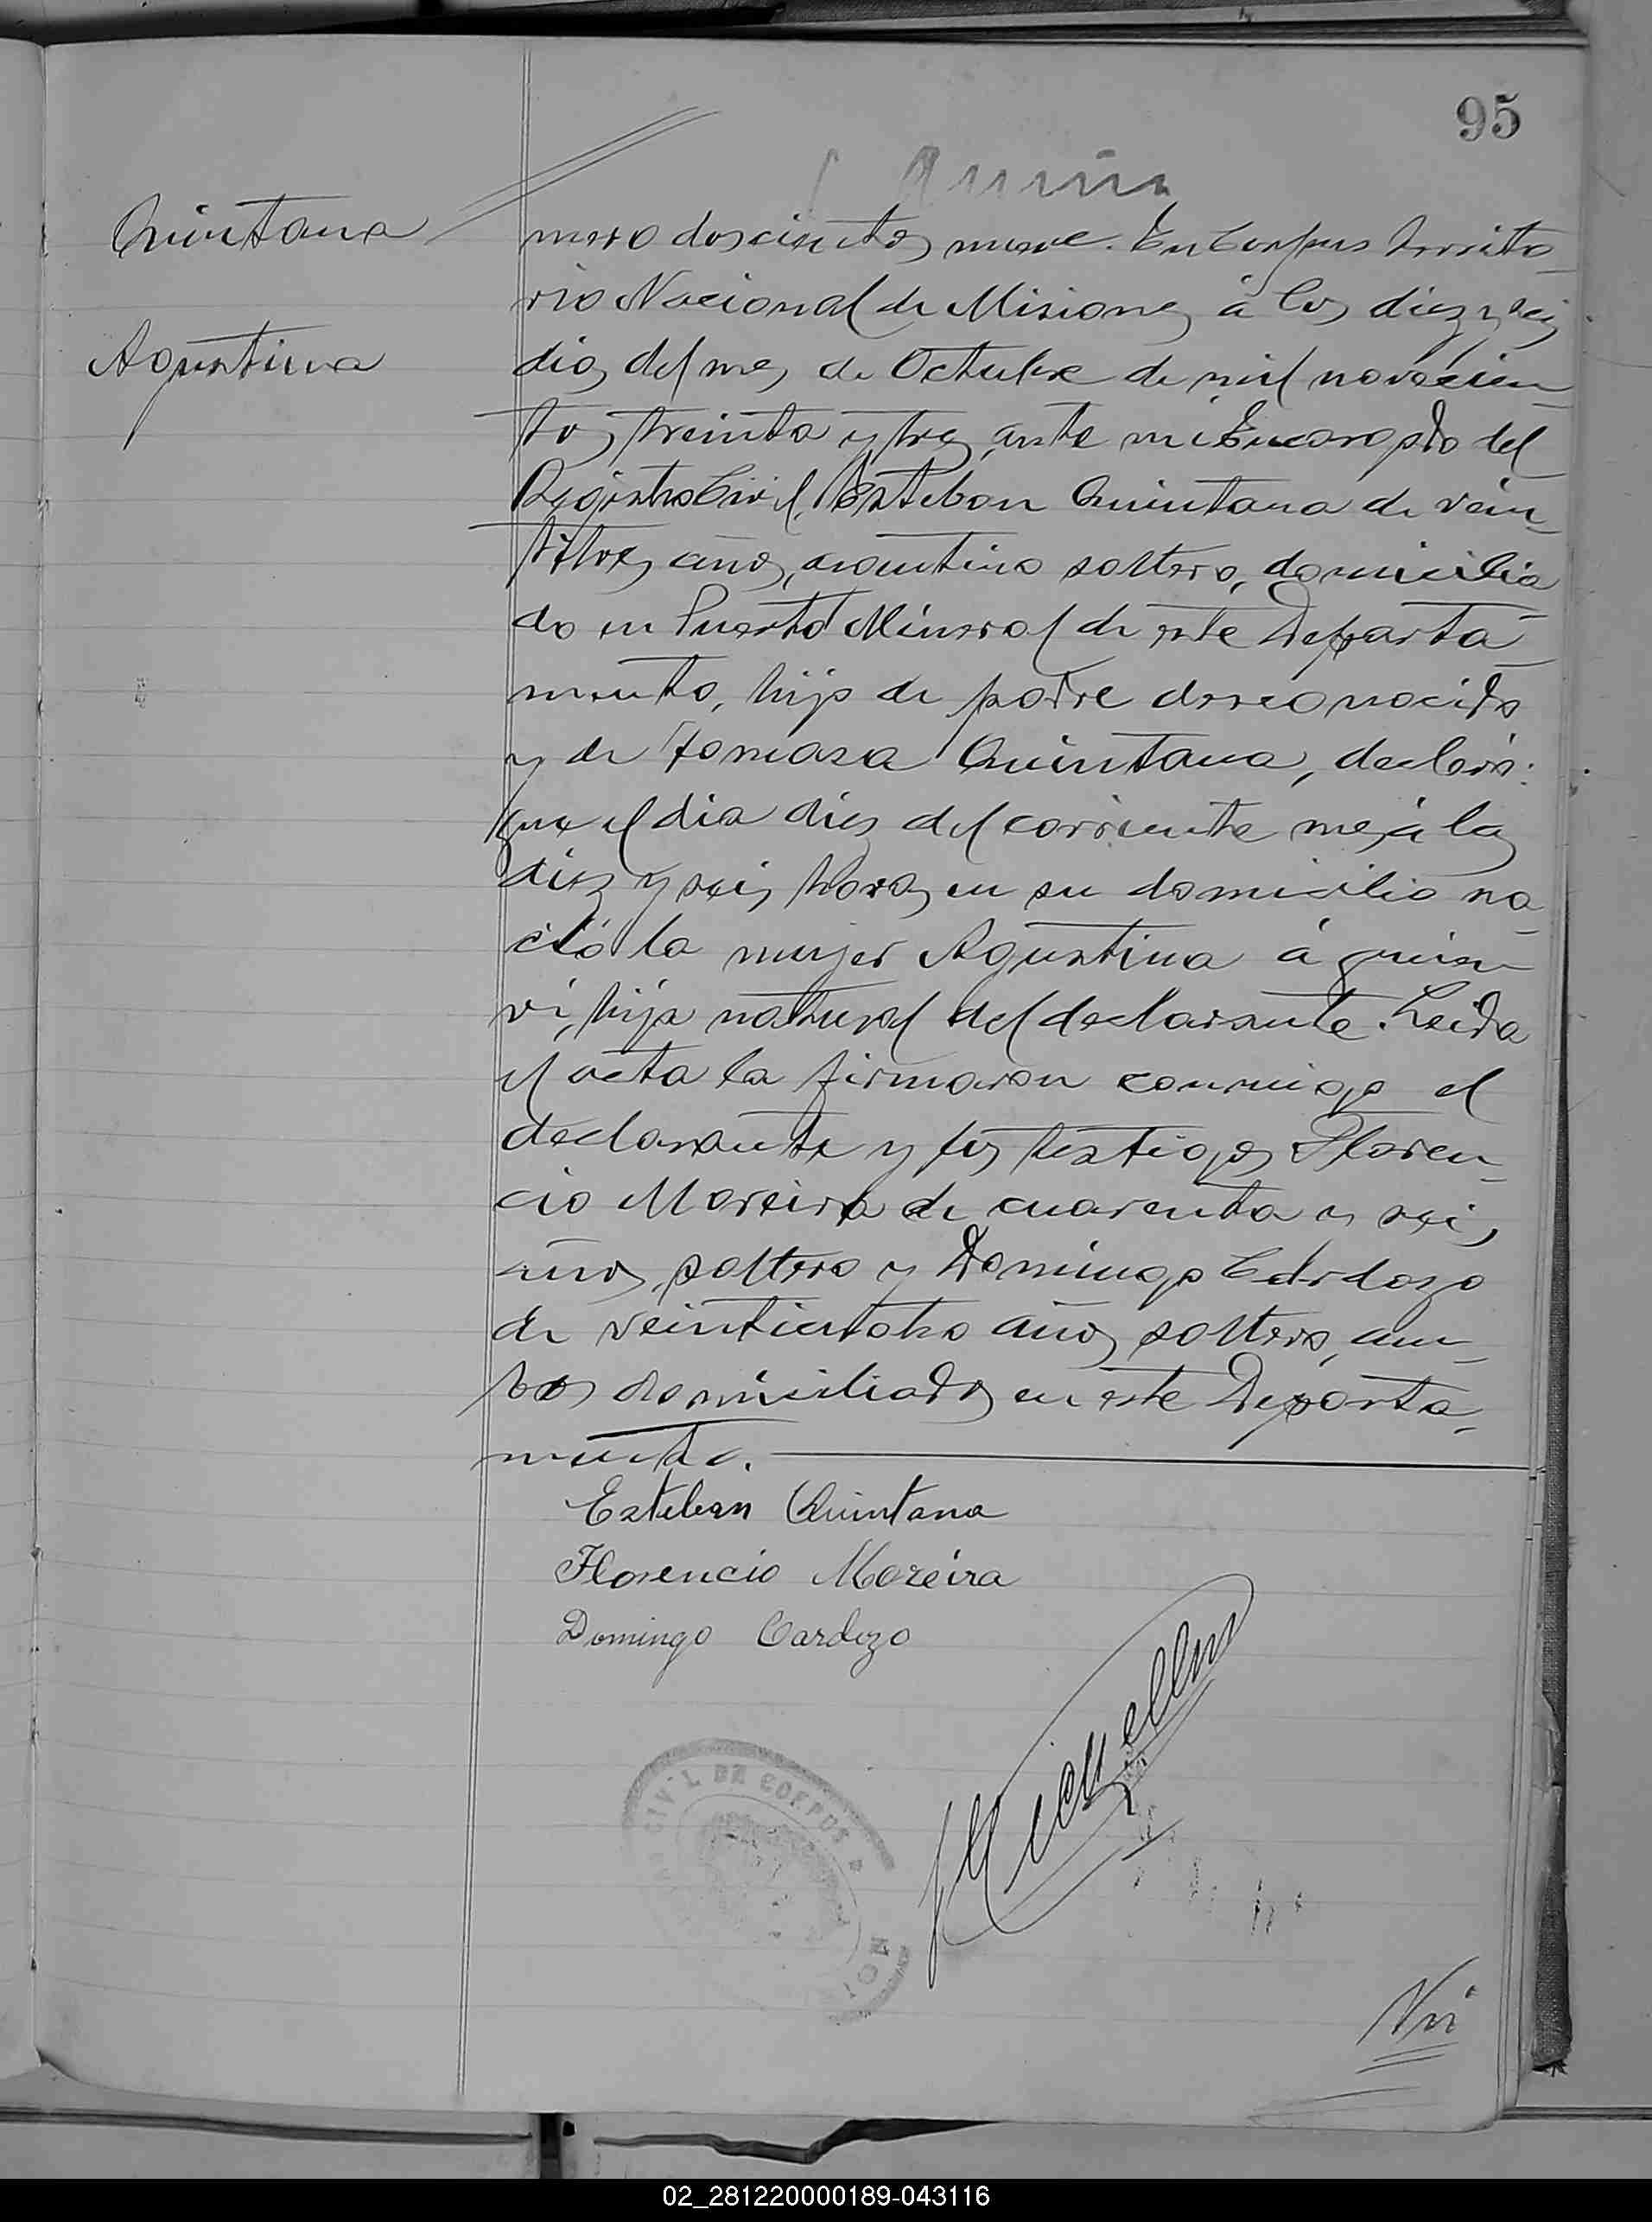 95
Quintana
Agustina
mero doscientos nueve. En Corpus Territo-
rio Nacional de Misiones á los diez y seis
dias del mes de Octubre de mil novecien-
tos treinta y tres, ante mi Encargado del
Registro Civil, Esteban Quintana de vein-
titres años, argentino soltero, domicilia
do en Puerto Mineral de este Departa-
mento, hijo de padre desconocido
y de Tomasa Quintana, declaró:
que el dia diez del corriente mes á las
diez y seis horas en su domicilio na-
ció la mujer Agustina á quien
ví, hija natural del declarante. Leida
el acta la firmaron conmigo el
declarante y los testigos Floren-
cio Moreira de cuarenta y seis
años, soltero y Domingo Cardozo
de veinticuatro años soltero, am-
bos domiciliados en este Departa-
mento.
Esteban Quintana
Florencio Moreira
Domingo Cardozo
CIVIL DE CORPUS
02_281220000189-043116